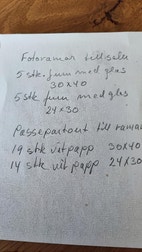 Fotoramar till salu
5 stk. furu med glas
30x40
5 stk furu med glas
24x30
Passepartout till ramar
19 stk vit papp 30x40
14 stk vit papp 24x30